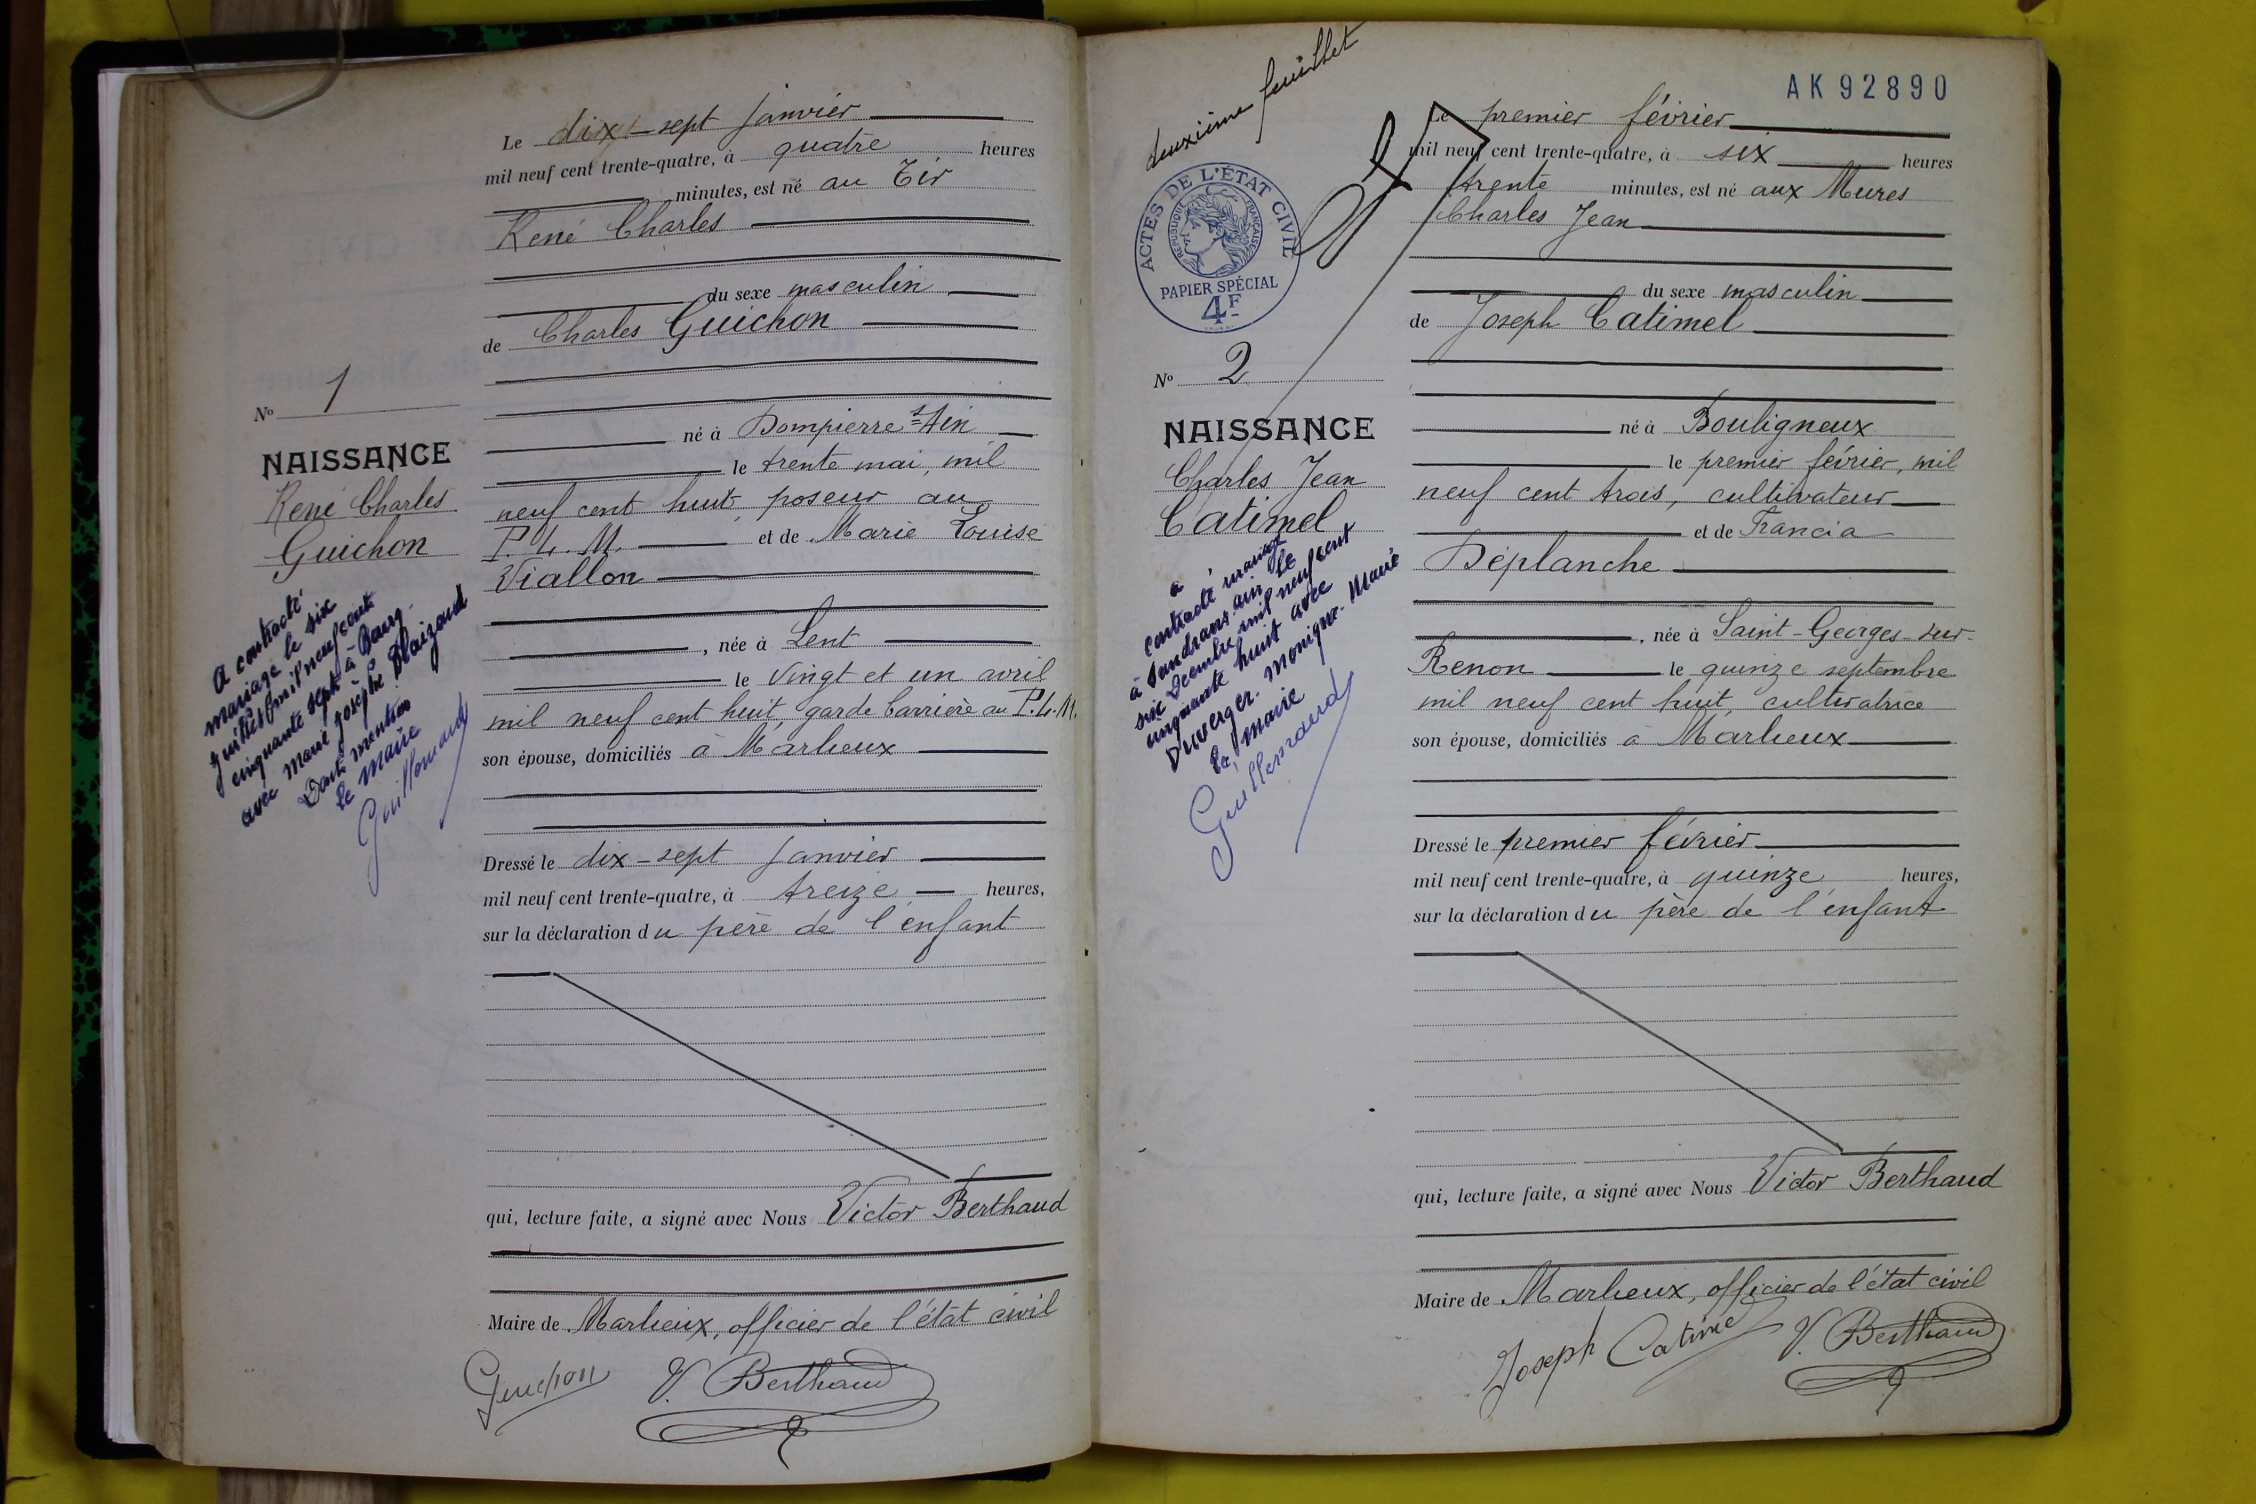 Le dix-sept janvier
mil neuf cent trente-quatre, à quatre heures
minutes, est né au Tir
René Charles
du sexe masculin
de Charles Guichon
né à Dompierre s/ Ain
le trente mai, mil
neuf cent huit, poseur au
P.L.M. et de Marie Louise
Viallon
, née à Lent
le vingt et un avril
mil neuf cent huit, garde barrière au P.L.M.
son épouse, domiciliés à Marlieux
Dressé le dix-sept janvier
mil neuf cent trente-quatre, à treize heures,
sur la déclaration du père de l'enfant
qui, lecture faite, a signé avec Nous Victor Berthaud
Maire de Marlieux, officier de l'état civil
Guichon V. Berthaud
No 1
NAISSANCE
René Charles
Guichon
a contracté
mariage le six
juillet mil neuf cent
cinquante sept à Bourg
avec Marie Josèphe Blaizaud
Dont mention
le maire
Guillemaud
deuxième feuillet
AK 92890
ACTES DE L'ÉTAT CIVIL
RÉPUBLIQUE FRANÇAISE
PAPIER SPÉCIAL
4F
No 2
NAISSANCE
Charles Jean
Catimel
a
contracté mariage
à Sandrans ain le
six Décembre mil neuf cent
cinquante huit avec
Duverger. Monique. Marie
le maire
Guillemaud
Le premier février
mil neuf cent trente-quatre, à six heures
trente minutes, est né aux Mures
Charles Jean
du sexe masculin
de Joseph Catimel
né à Bouligneux
le premier février, mil
neuf cent trois, cultivateur
et de Francia
Déplanche
, née à Saint-Georges-sur-
Renon le quinze septembre
mil neuf cent huit, cultivatrice
son épouse, domiciliés à Marlieux
Dressé le premier février
mil neuf cent trente-quatre, à quinze heures,
sur la déclaration du père de l'enfant
qui, lecture faite, a signé avec Nous Victor Berthaud
Maire de Marlieux, officier de l'état civil
Joseph Catimel V. Berthaud